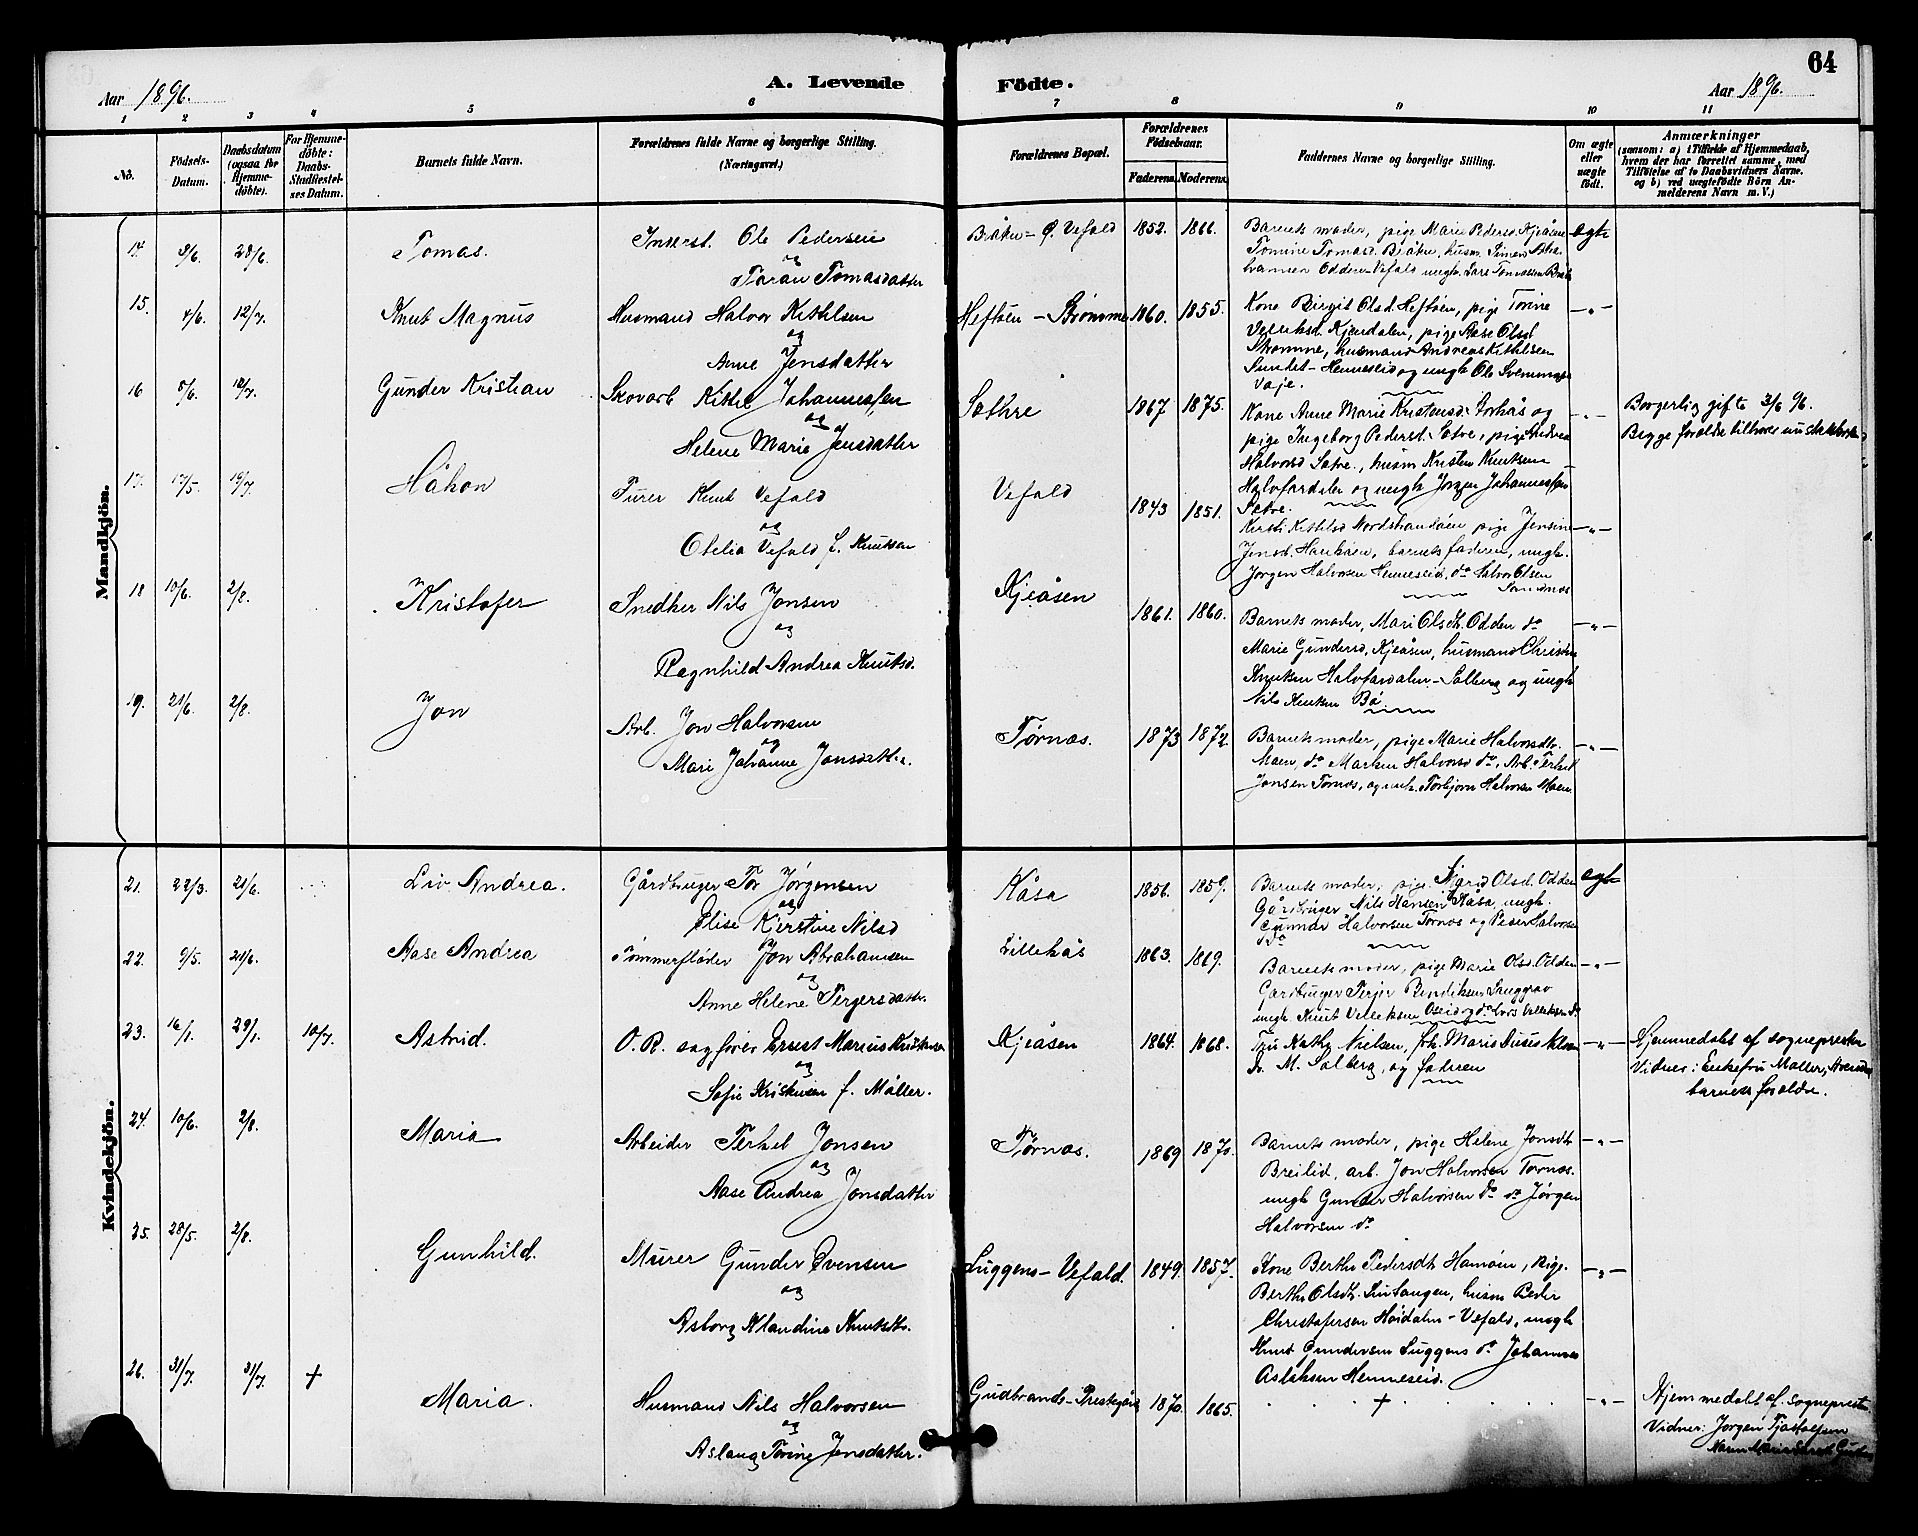 64
Aar 1896. A. Levende Födte. Aar 1896.
1 2 3 4 5 6 7 8 9 10 11
No. Födsels-Datum. Daabsdatum (ogsaa for Hjemme-döbte). For Hjemme-döbte: Daabs-Stadfæstel-ses Datum. Barnets fulde Navn. Forældrenes fulde Navne og borgerlige Stilling. (Næringsvei.) Forældrenes Bopæl. Forældrenes Födselsaar. Faderens Moderens. Faddernes Navne og borgerlige Stilling. Om ægte eller uægte födt. Anmærkninger
(saasom: a) i Tilfælde af Hjemmedaab,
hvem der har forrettet samme, med
Tilföielse af to Daabsvidners Navne.
og b) ved uægtefödte Börn An-
melderens Navn m. V.)
Mandkjön.
28/6. Tomas. Inderst. Ole Pedersen
og
Toran Tomasdatter
Vefald 1852. 1866. Barnets moder, pige Marie Pedersd. Kjeåsen ægte
15. 4/6. 12/7. Knut Magnus Husmand Halvor Kittilsen
og
Anne Jensdatter
Heftøen - Strømme 1860. 1855. Kone Birgit Olsd. Heftøen, pige Torine
Kjendalen, pige Aase Olsd.
Strømme, husmand Andreas Kittilsen
Sundet - Henneseid og ungk. Ole
Vaje. -"-
16 5/6. 12/7. Gunder Kristian Skovarb Kittel Johannessen
og
Helene Marie Jensdatter
Sæthre 1867 1875. Kone Anne Marie Kristensd. og
pige Ingeborg Pedersd. pige Andrea
Halvorsd Sætre., husm Kristen Knutsen
Halvfardalen og ungk Jørgen Johannessen
Sætre. -"- Borgerlig gift 3/6 96.
Begge forældre tilhører
17. 17/5. 19/7. Håkon Knut Vefald
og
Otelia Vefald f. Knutsen
Vefald 1843 1851. Kittilsd Nordstrandøen pige Jensine
Jensd. barnets faderen, ungk.
Jørgen Halvorsen Henneseid, do Halvor Olsen -"-
18 10/6. 2/8. Kristofer Snedker Nils Jonsen
og
Ragnhild Andrea Knutsd.
Kjeåsen 1861. 1860. Barnets moder, Mari Olsdt. Odden do
Marie Gundersd, Kjeåsen, husmand Christen
Knutsen Halvfardalen - Solberg og ungk
Nils Knutsen Bø -"-
19. 21/6. 2/8. Jon Arb. Jon Halvorsen
og
Mari Johanne Jonsdatter.
Tørnæs. 1873 1872. Barnets moder, pige Marie Halvorsdtr.
Moen, do Maren Halvorsd do, Arb. Terkel
Jonsen Tørnæs, og ungk. Torbjørn Halvorsen Moen -"-
Kvindekjön.
21. 22/3. 21/6. Liv Andrea. Gårdbruger Tor Jørgensen
og
Elise Kjerstine Nilsd
Kåsa 1856. 1859. Barnets moder, pige. Sigrid Olsd. Odden ægte
Gårdbruger Nils Hansen Kåsa, ungk.
Gunnar Halvorsen Tørnæs og Peder Halvorsen
do
22. 9/5. 21/6. Aase Andrea Tømmerfløder Jon Abrahamsen
og
Anne Helene Tergersdatter.
Lillekås 1863. 1869. Barnets moder, pige Marie Olsd. Odden -"-
Gardbruger Terjer Bendiksen
ungk. Knut Velleksen do Lars Velleksen do
23. 16/1. 29/1. 10/7. Astrid. O. R. sagfører Ernest Marius Kristensen
og
Sofie Kristensen f. Møller.
Kjeåsen 1864. 1868. Fru Kathr Nielsen, frk. Marie
Dr. M. Solberg, og faderen -"- Hjemmedøbt af sogneprester
Vidner: Enkefru Møller,
barnets forældre.
24. 10/6. 2/8. Maria Arbeider Terkel Jonsen
og
Aase Andrea Jonsdatter
Tørnæs. 1869 1870. Barnets moder, pige Helene Jonsdtr -"-
Breilid, arb. Jon Halvorsen Tørnæs.
ungk Gunder Halvorsen do do Jørgen
Halvorsen do
25. 28/5. 2/8. Gunhild. Murer Gunder Evensen
og
Asborg Klandine Knutsdtr.
Luggens - Vefald. 1849. 1857. Kone Berthe Pedersdt Hamøen, pige. -"-
Berthe Olsdt. husm Peder
Christofersen Høidalen - Vefald, ungk
Knut Gundersen Luggens do Johannes
Aslaksen Henneseid.
26. 31/7. 31/7. + Maria. Husmand Nils Halvorsen
og
Aslaug Torine Jensdatter.
Gudbrands - Prestegård 1870. 1865. + -"- Hjemmedøbt af. sogneprest
Vidner: Jørgen